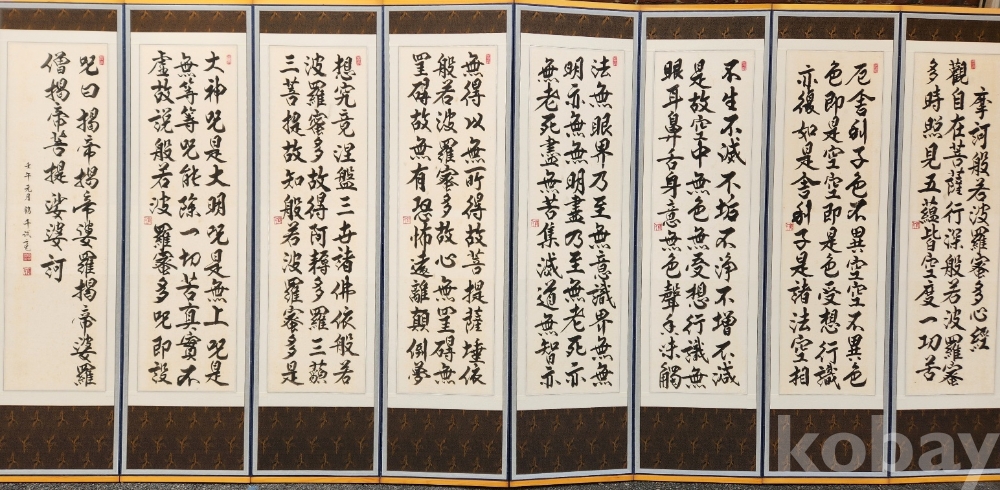 摩訶般若波羅蜜多心經
觀自在菩薩行深般若波羅蜜
多時照見五蘊皆空度一切苦
厄舍利子色不異空空不異色
色即是空空即是色受想行識
亦復如是舍利子是諸法空相
不生不滅不垢不淨不增不減
是故空中無色無受想行識無
眼耳鼻舌身意無色聲香味觸
法無眼界乃至無意識界無無
明亦無無明盡乃至無老死亦
無老死盡無苦集滅道無智亦
無得以無所得故菩提薩埵依
般若波羅蜜多故心無罣碍無
罣碍故無有恐怖遠離顛倒夢
想究竟涅盤三世諸佛依般若
波羅蜜多故得阿耨多羅三藐
三菩提故知般若波羅蜜多是
大神呪是大明呪是無上呪是
無等等呪能除一切苦真實不
虛故說般若波羅蜜多呪即說
呪曰揭帝揭帝婆羅揭帝婆羅
僧揭帝菩提娑婆訶
壬午元月
kobay